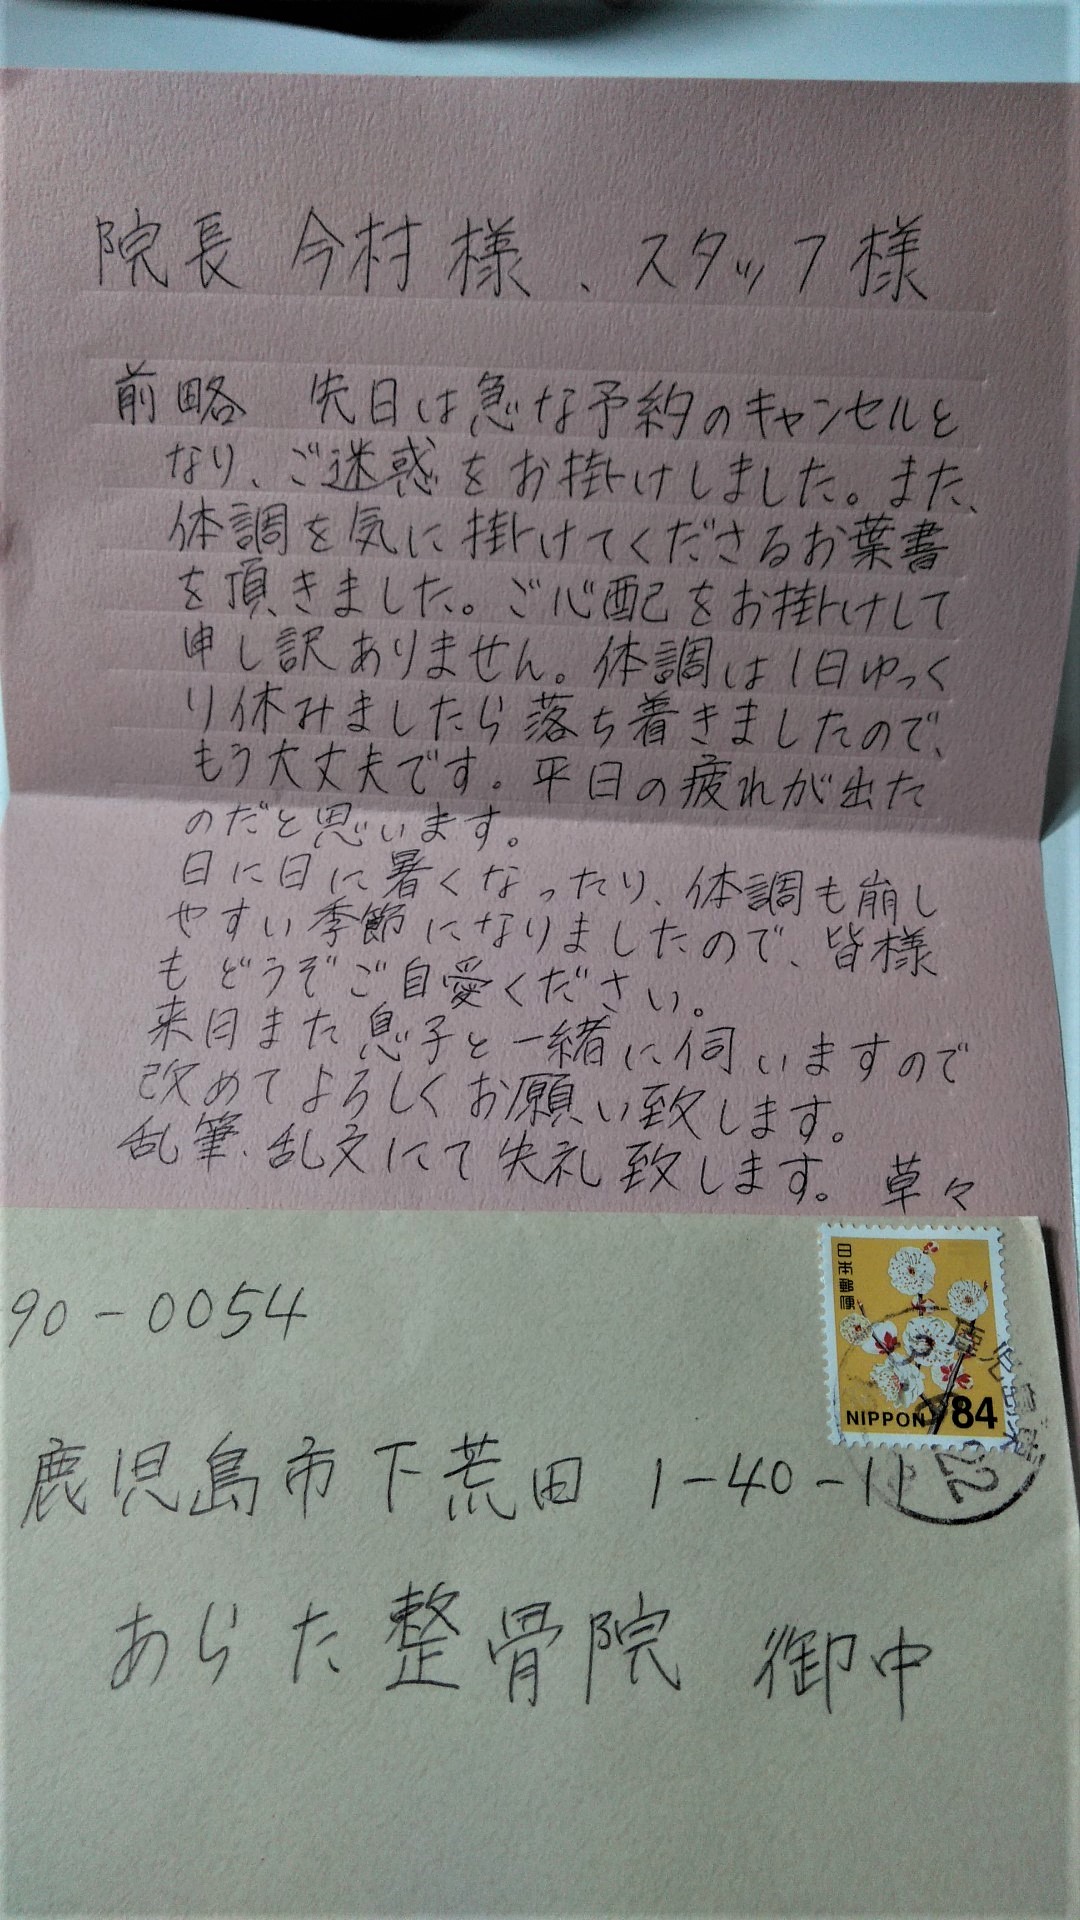 院長 今村様、スタッフ様
前略 先日は急な予約のキャンセルと
なり、ご迷惑をお掛けしました。また、
体調を気に掛けてくださるお葉書
を頂きました。ご心配をお掛けして
申し訳ありません。体調は1日ゆっく
り休みましたら落ち着きましたので、
もう大丈夫です。平日の疲れが出た
のだと思います。
日に日に暑くなったり、体調も崩し
やすい季節になりましたので、皆様
もどうぞご自愛ください。
来月また息子と一緒に伺いますので
改めてよろしくお願い致します。
乱筆、乱文にて失礼致します。 草々
日本郵便
NIPPON 84
90-0054
鹿児島市下荒田 1-40-11
あらた整骨院 御中